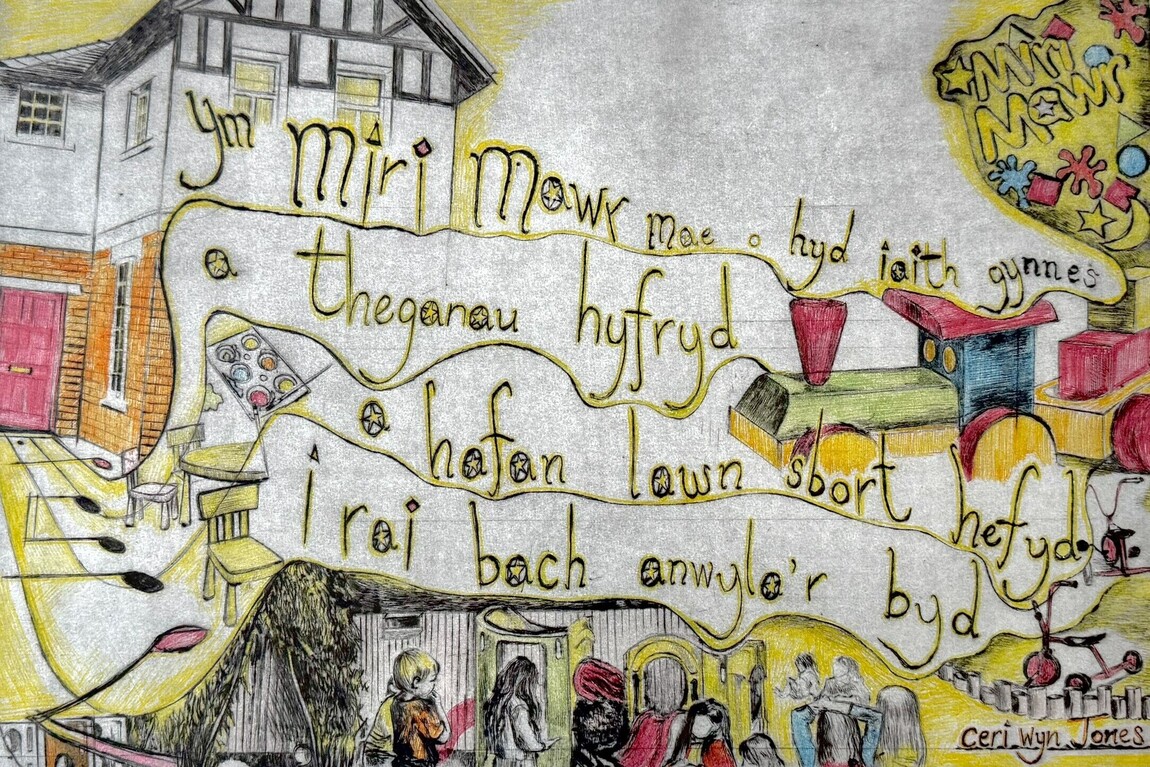 Miri
Mawr
ym miri mawr mae o hyd iaith gynnes
a theganau hyfryd
a hafan lawn sbort hefyd
i rai bach anwyla'r byd
ceri wyn Jones